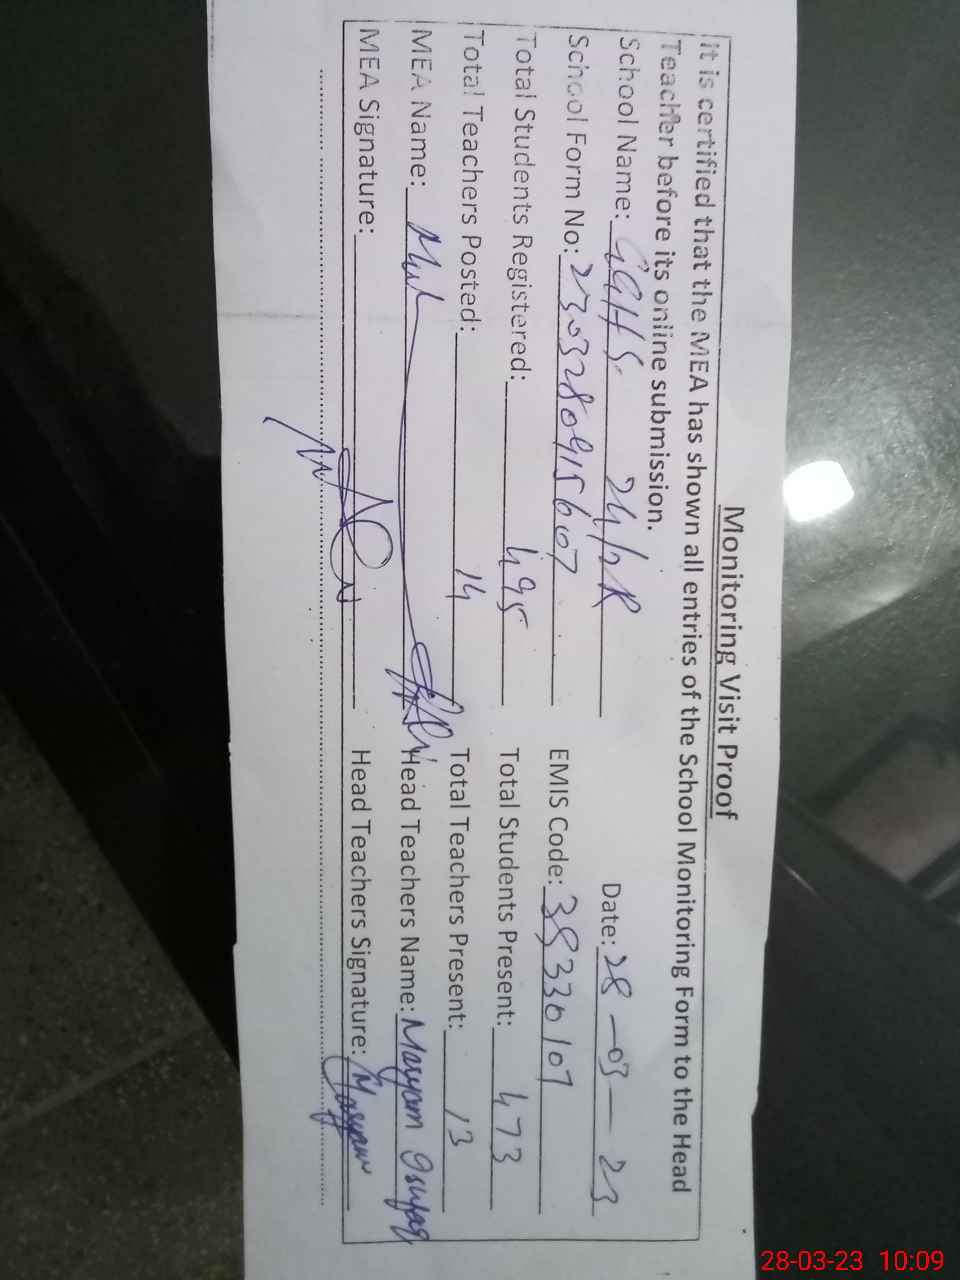 Monitoring Visit Proof
it is certified that the MEA has shown all entries of the School Monitoring Form to the Head
Teacher before its online submission.
School Name: GGHS. 24/2R Date: 28-03-23
School Form No: 2303280915607 EMIS Code: 38330107
Total Students Registered: 495 Total Students Present: 473
Total Teachers Posted: 14 Total Teachers Present: 13
MEA Name: Head Teachers Name: Maryam
MEA Signature: Head Teachers Signature: Maryam
28-03-23 10:09